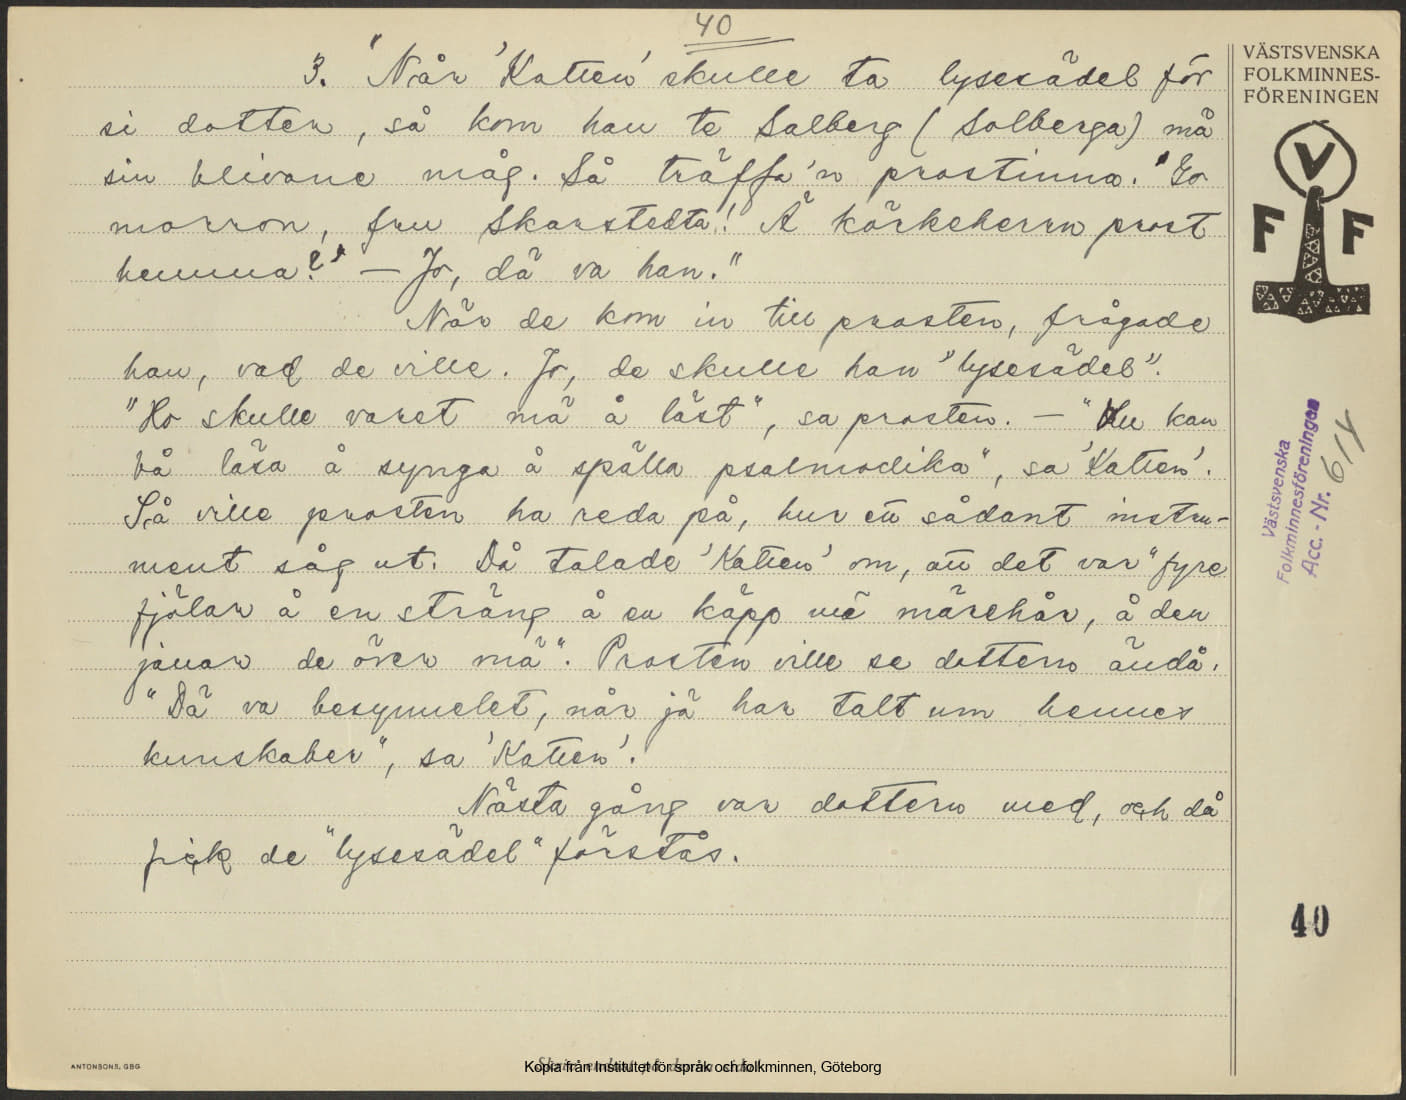 40
3. "När 'Katten' skulle ta lysesädel för
si dotter, så kom han te Salberg (Solberga) mä
sin blivane måg. Så träffa'n prostinna. "Go
morron, fru Skarstedta! Ä kärkeherrn prost
hemma?" — Jo, dä va han."
När de kom in till prosten, frågade
han, vad de ville. Jo, de skulle han "lysesädel".
"Ho skulle varet mä å läst", sa prosten. — "Hu kan
bå läsa å synga å spälla psalmodika", sa 'Katten'.
Så ville prosten ha reda på, hur ett sådant instru-
ment såg ut. Då talade 'Katten' om, att det var "fyre
fjölar å en sträng å en käpp mä märehår, å den
jånar de över mä". Prosten ville se dottern ändå.
"Dä va besynnelet, når jä har talt um hennes
kunskaber", sa 'Katten'.
Nästa gång var dottern med, och då
fick de "lysesädel" förstås.
VÄSTSVENSKA
FOLKMINNES-
FÖRENINGEN
V
F F
Västsvenska
Folkminnesföreningen
Acc. - Nr. 614
40
ANTONSONS, GBG
Kopia från Institutet för språk och folkminnen, Göteborg